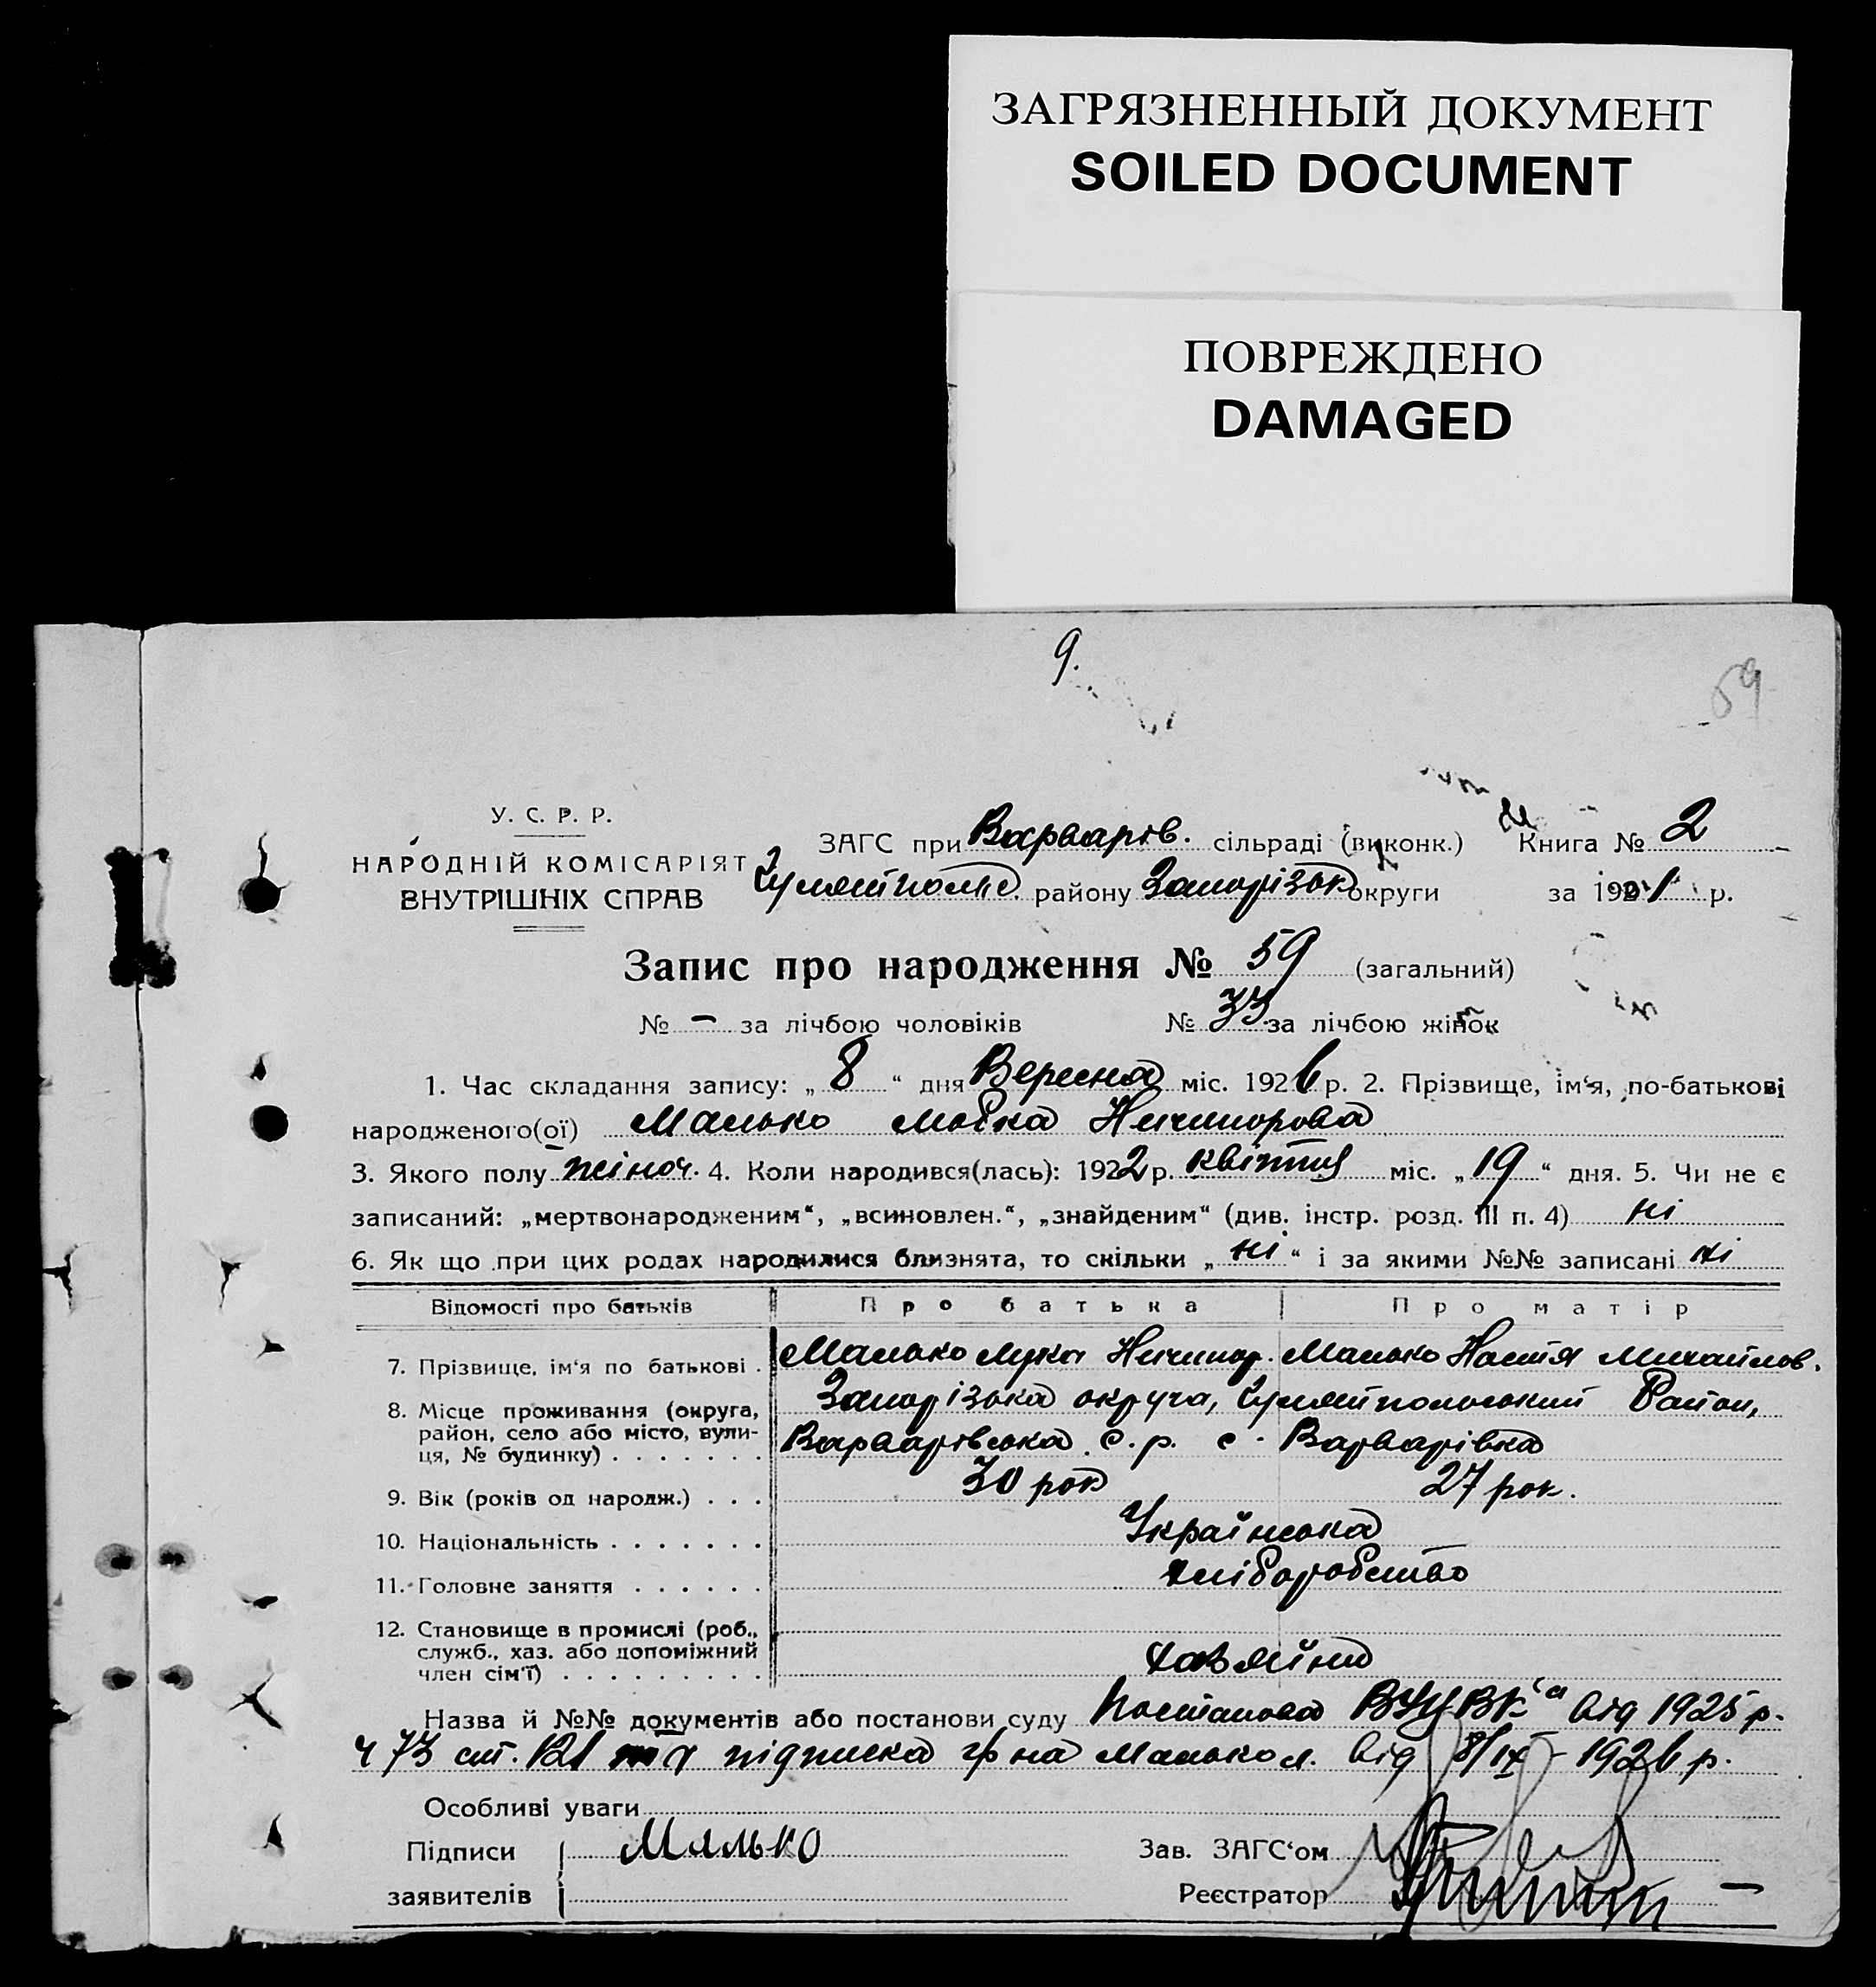 ЗАГРЯЗНЕННЫЙ ДОКУМЕНТ
SOILED DOCUMENT
ПОВРЕЖДЕНО
DAMAGED
9.
59
У. С. Р. Р.
НАРОДНІЙ КОМІСАРІЯТ
ВНУТРІШНІХ СПРАВ
ЗАГС при Варварів. сільраді (виконк.) Книга № 2
Гуляйпольс. району Запорізьк округи за 192 р.
Запис про народження № 59 (загальний)
№ – за лічбою чоловіків № 33 за лічбою жінок
1. Час складання запису: „ 8 “ дня Вересна міс. 1926 р. 2. Прізвище, ім'я, по-батькові
народженого(ої) Малько Ничипорова
3. Якого полу жіноч. 4. Коли народився(лась): 1922 р. квітня міс. „ 19 “ дня. 5. Чи не є
записаний: „мертвонародженим“, „всиновлен.“, „знайденим“ (див. інстр. розд. III п. 4) ні
6. Як що при цих родах народилися близнята, то скільки „ ні “ і за якими №№ записані ні
Відомості про батьків Про батька Про матір
7. Прізвище, ім'я по батькові . Малько Лука Ничипор. Малько Настя Михайлов.
8. Місце проживання (округа, район, село або місто, вулиця, № будинку) . . . . . . . Запорізька округа, Гуляйпольський Район,
Варварівська с.р. с. Варварівка
9. Вік (років од народж.) . . . 30 рок 27 рок.
10. Національність . . . . . . . Українська
11. Головне заняття . . . . . . хліборобство
12. Становище в промислі (роб., служб., хаз. або допоміжний член сім'ї) . . . . . . . . . хазяйни
Назва й №№ документів або постанови суду Постанова ВУЦВК'а від 1925 р.
ч 73 ст. 121 та підписка гр на Малько Л. від 8/IX – 1926 р.
Особливі уваги
Підписи Малько Зав. ЗАГС'ом
заявителів Реєстратор